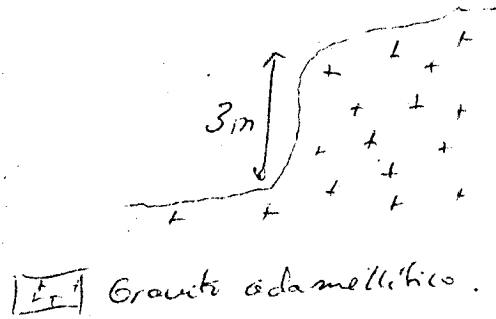 3m
Granito adamellítico.